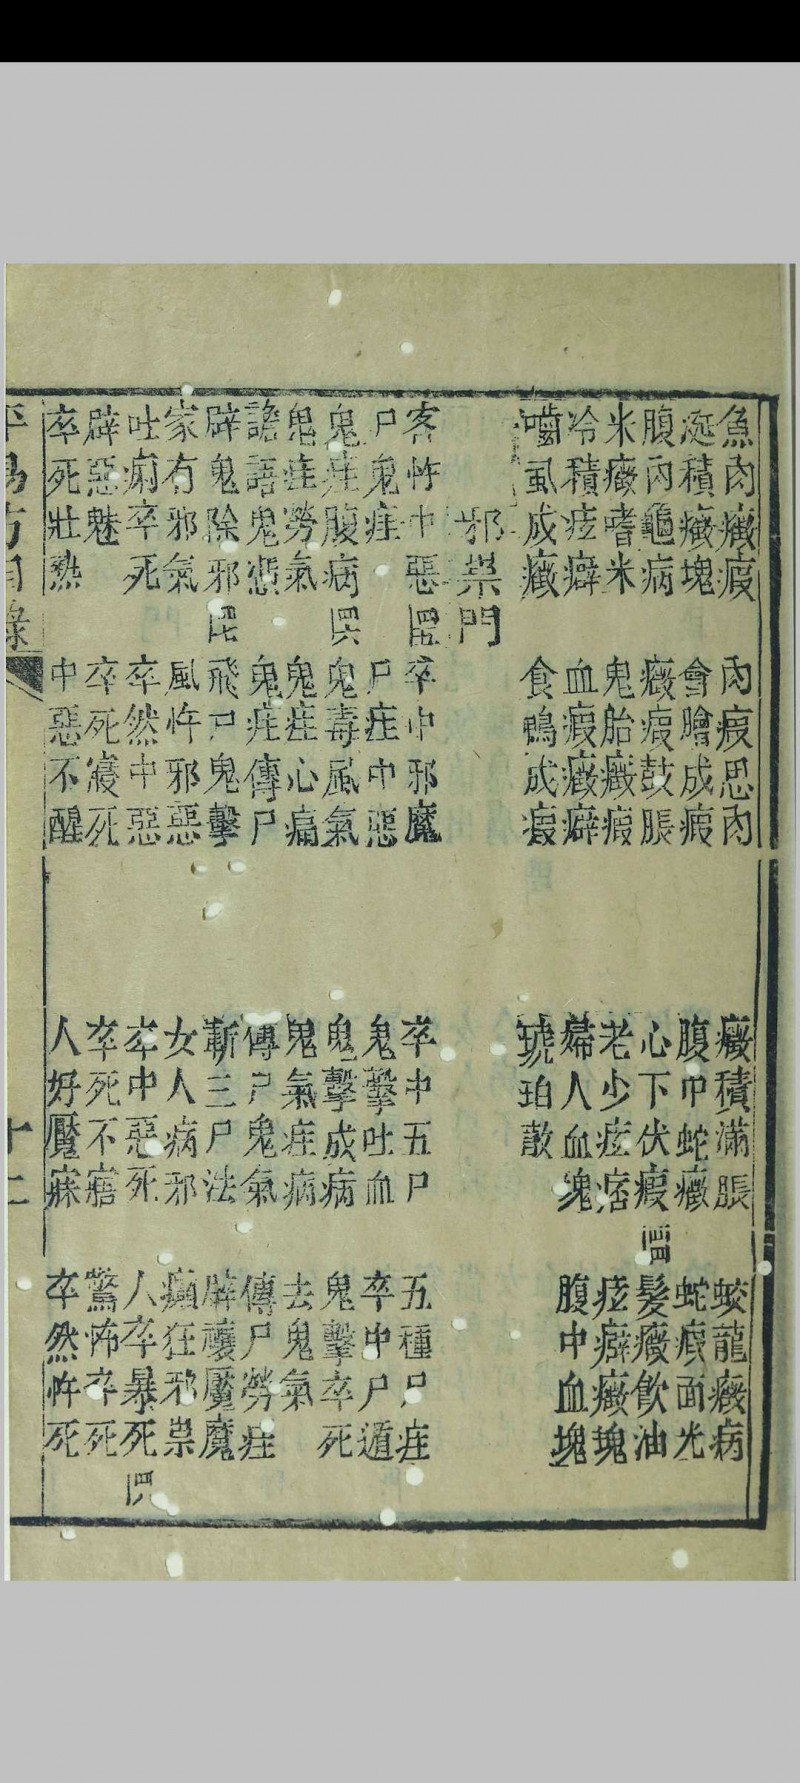 魚肉癥瘕　肉瘕思肉　癥積滿脹　蛟龍癥病
涎積癥塊　會膾成瘕　腹中蛇癥　蛇瘕面光
腹內龜病　癥瘕鼓脹　心下伏瘕　髮癥飲油
米癥嗜米　鬼胎癥瘕　老少痃痞　痃癖癥塊
冷積痃癖　血瘕癥癖　婦人血塊　腹中血塊
嚙虱成癥　食鴨成瘕　琥珀散
邪祟門
客忤中惡　卒中邪魔　卒中五尸　五種尸疰
尸鬼疰　尸疰中惡　鬼擊吐血　卒中尸遁
鬼疰腹病　鬼毒風氣　鬼擊成病　鬼擊卒死
鬼疰勞氣　鬼疰心痛　鬼氣疰病　去鬼氣
譫語鬼　鬼疰傳尸　傳尸鬼氣　傳尸勞疰
辟鬼除邪　飛尸鬼擊　斬三尸法　辟禳魘魔
家有邪氣　風忤邪惡　女人病邪　癲狂邪祟
吐痢卒死　卒然中惡　卒中惡死　人卒暴死
辟惡魅　卒死寢死　卒死不寤　驚怖卒死
卒死壯熱　中惡不醒　人好魘寐　卒然忤死
方目錄
十二